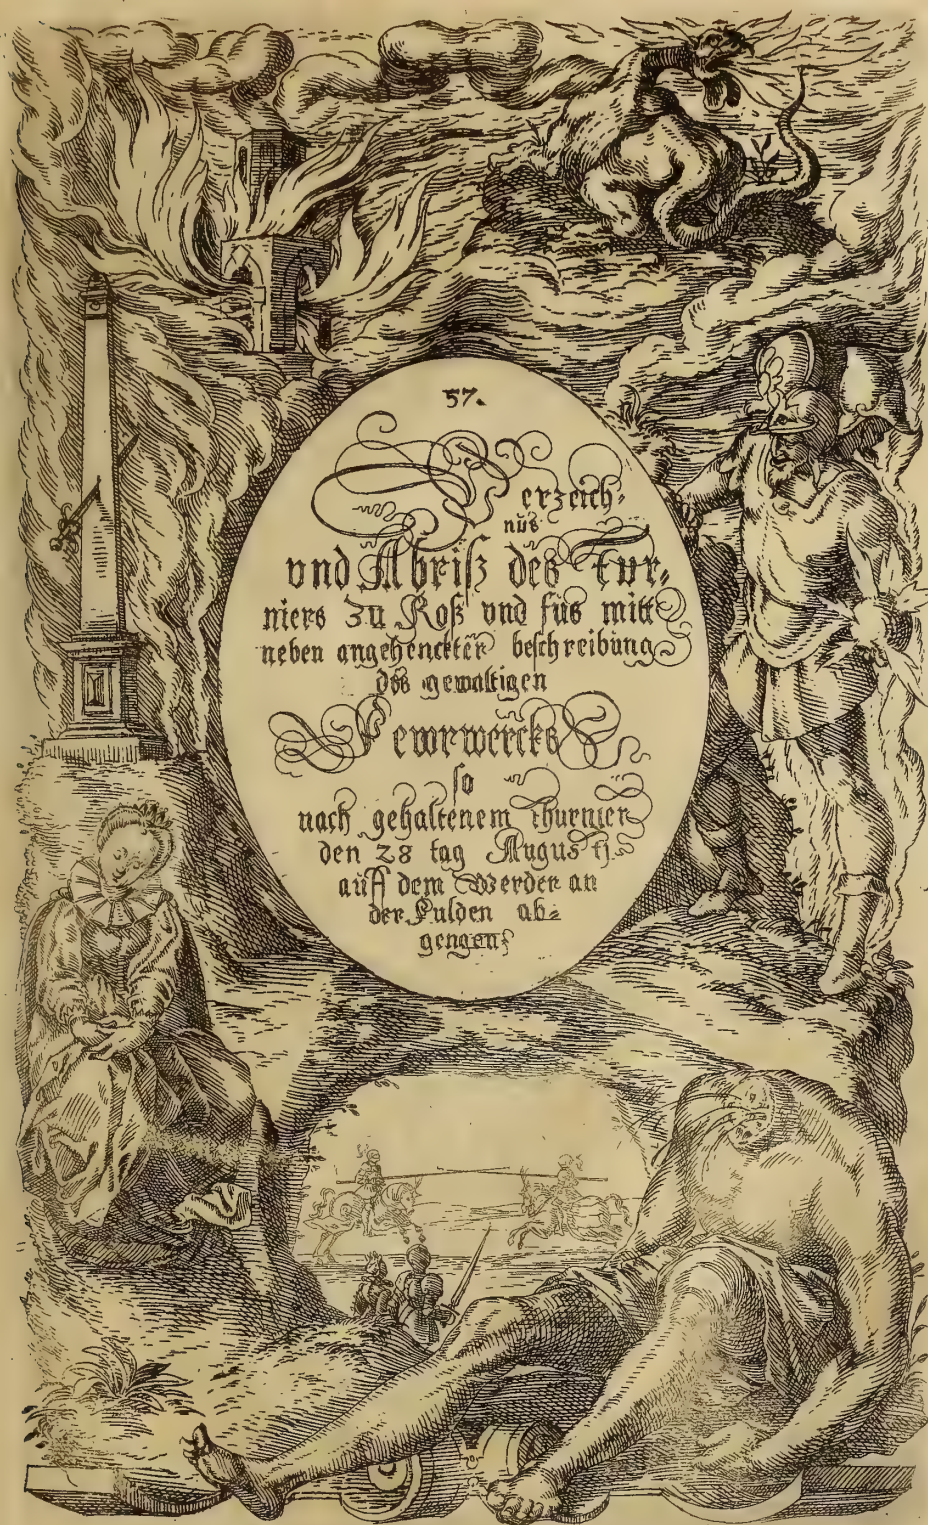 57.
Verzeich⸗
nüs
vnd Abriß des Tur⸗
niers zu Roß vnd füs mitt
neben angehenckter beschreibung
des gewaltigen
Fewrwercks
so
nach gehaltenem thurnier
den 28 tag Augusti
auff dem Werder an
der Fulden ab⸗
gengen